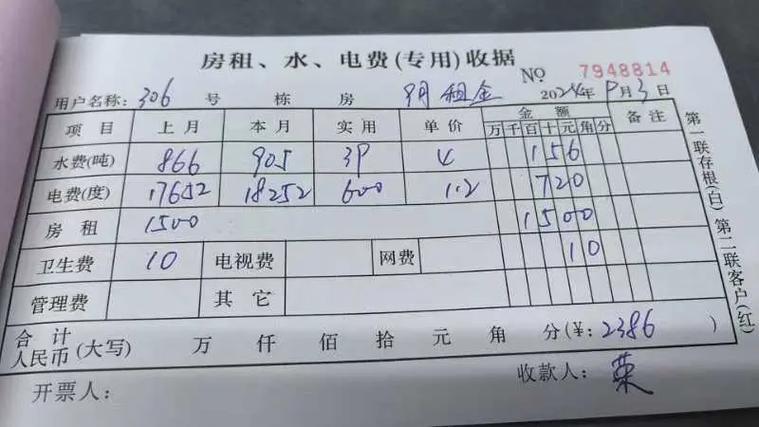 房租、水、电费(专用)收据
NO 7948814
用户名称: 306 号 栋 房 9月租金 2024年9月3日
项目 上月 本月 实用 单价 金额 备注
万千百十元角分
水费(吨) 866 905 39 4 156
电费(度) 17652 18252 600 1.2 720
房租 1500 1500
卫生费 10 电视费 网费 10
管理费 其它
合计人民币(大写) 万 仟 佰 拾 元 角 分(¥: 2386 )
开票人: 收款人: 荣
第一联存根(白) 第二联客户(红)